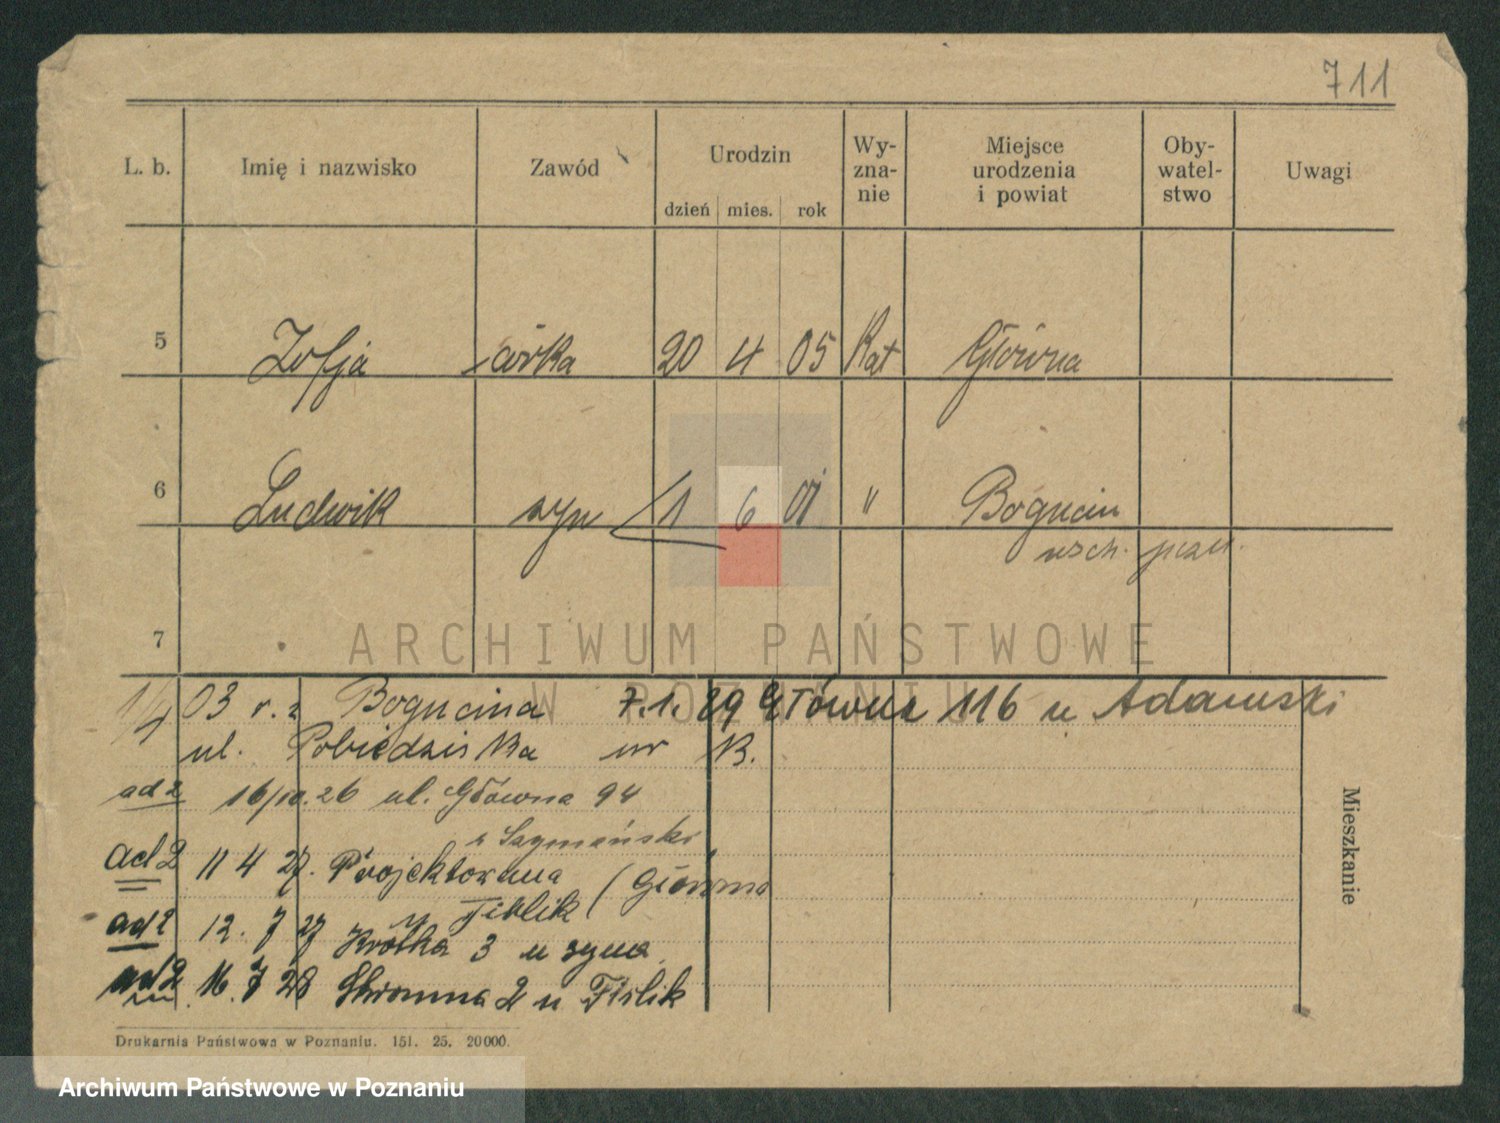 711
L. b. Imię i nazwisko Zawód Urodzin Wy-zna-nie Miejsce urodzenia i powiat Oby-watel-stwo Uwagi
dzień mies. rok
5 Zofja córka 20 4 05 Kat Główna
6 Ludwik syn 1 6 01 " Bogucin
wsch. pozn.
7
ARCHIWUM PAŃSTWOWE
W POZNANIU
1/4 03 r. z Bogucina 7.1.29 Główna 116 u Adamski
ul. Pobiedziska nr
ad 2 16/10.26 ul. Główna 94
u Szymański
ad 2 11 4 27. Projektowana (Główna
u Fiblik
ad 2 12. 7 27 Krótka 3 u syna
ad 2 16. 7 28 Skromna 2 u
Mieszkanie
Drukarnia Państwowa w Poznaniu. 151. 25. 20000.
Archiwum Państwowe w Poznaniu